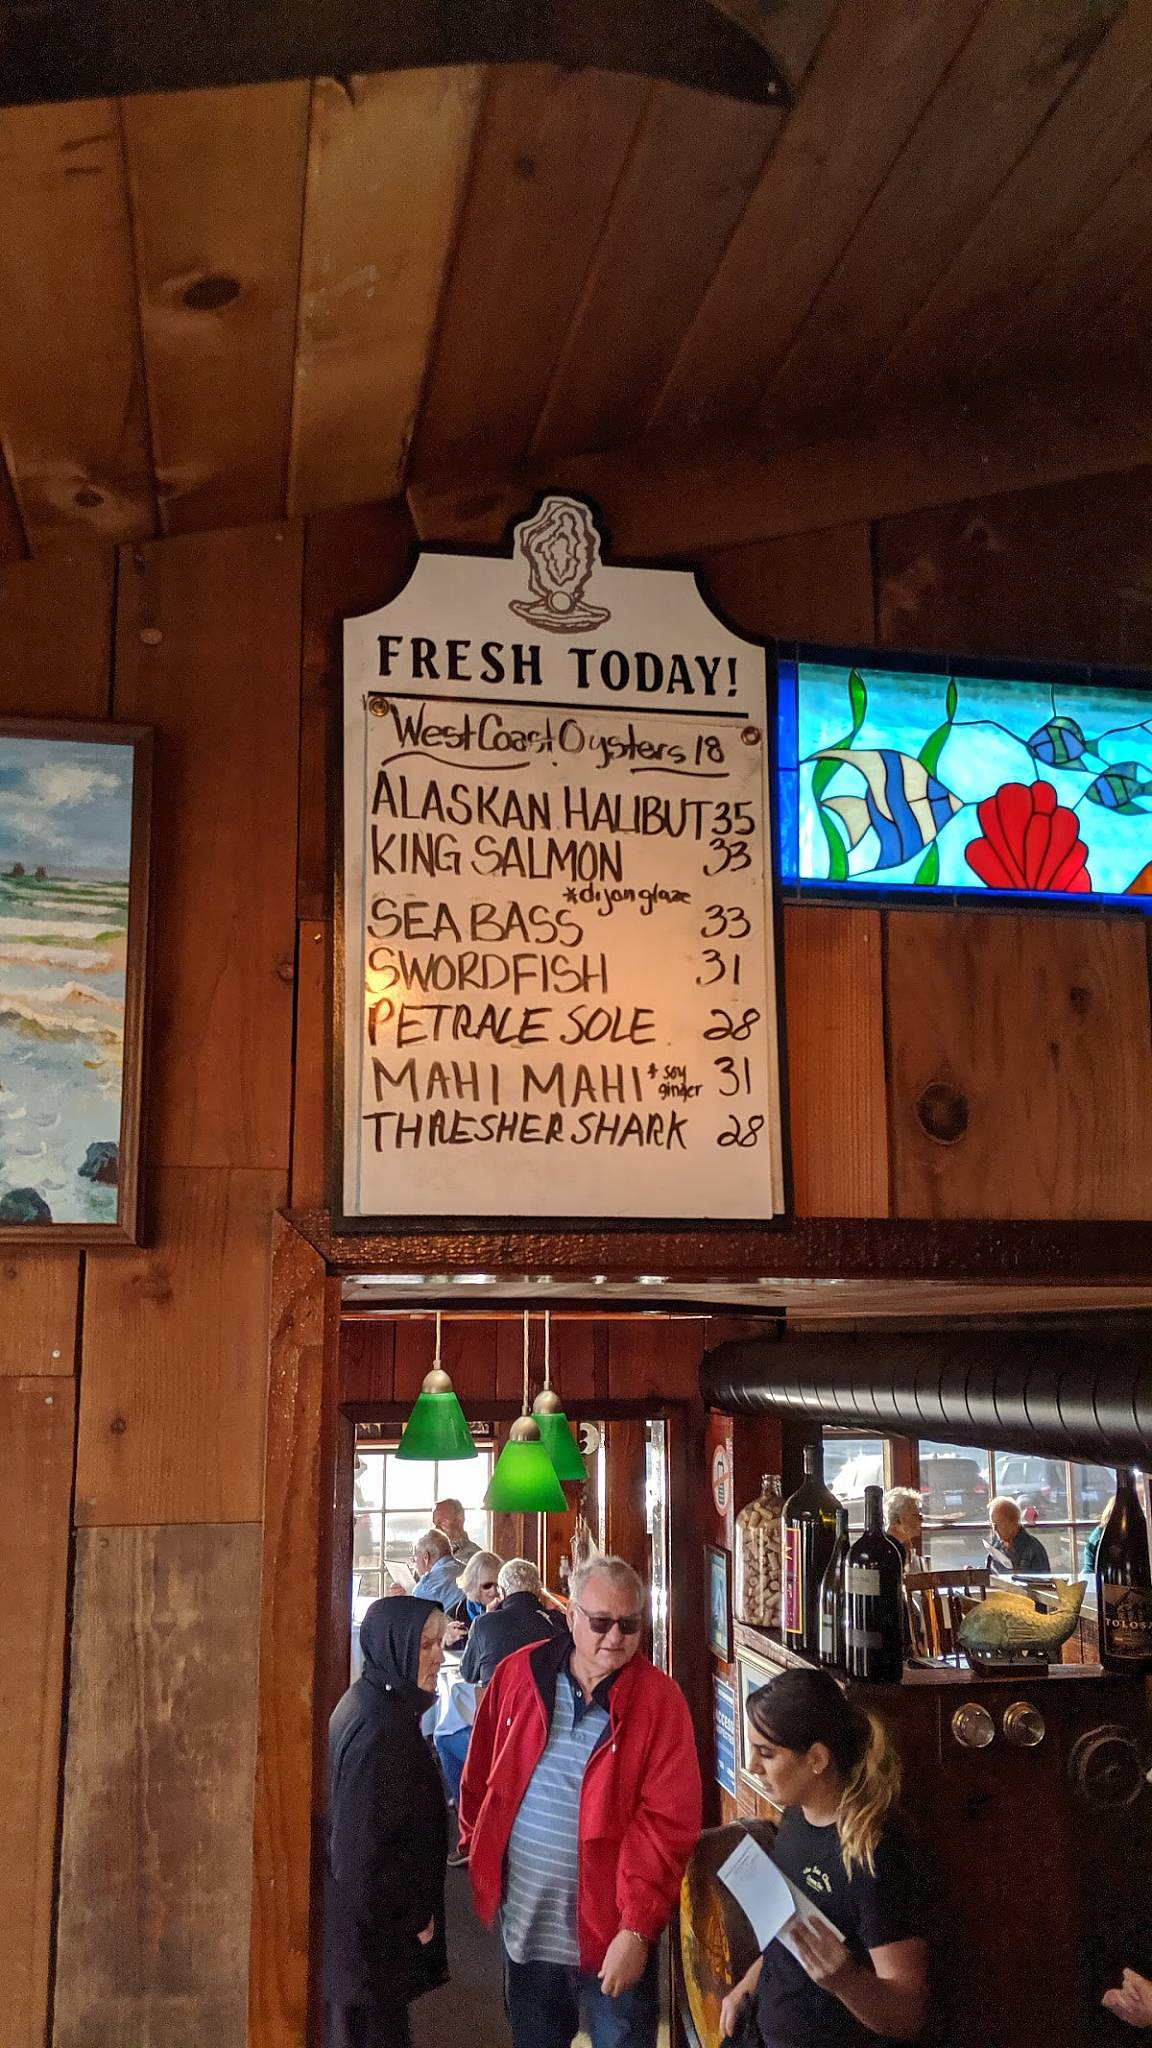 FRESH TODAY!
West Coast Oysters 18
ALASKAN HALIBUT 35
KING SALMON 33
*dijon glaze
SEA BASS 33
SWORDFISH 31
PETRALE SOLE 28
MAHI MAHI *soy ginger 31
THRESHER SHARK 28
TOLOSA
ACCESS